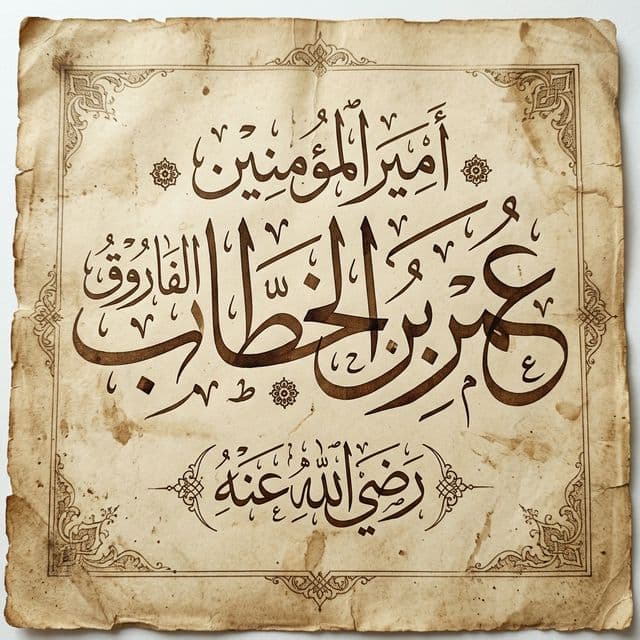 أَمِيَر الْمُؤْمِنِين
عُمَر بْن الخَطَّاب الفَارُوْقُ
رَضَيَ اللَّهِ عَنَهُ